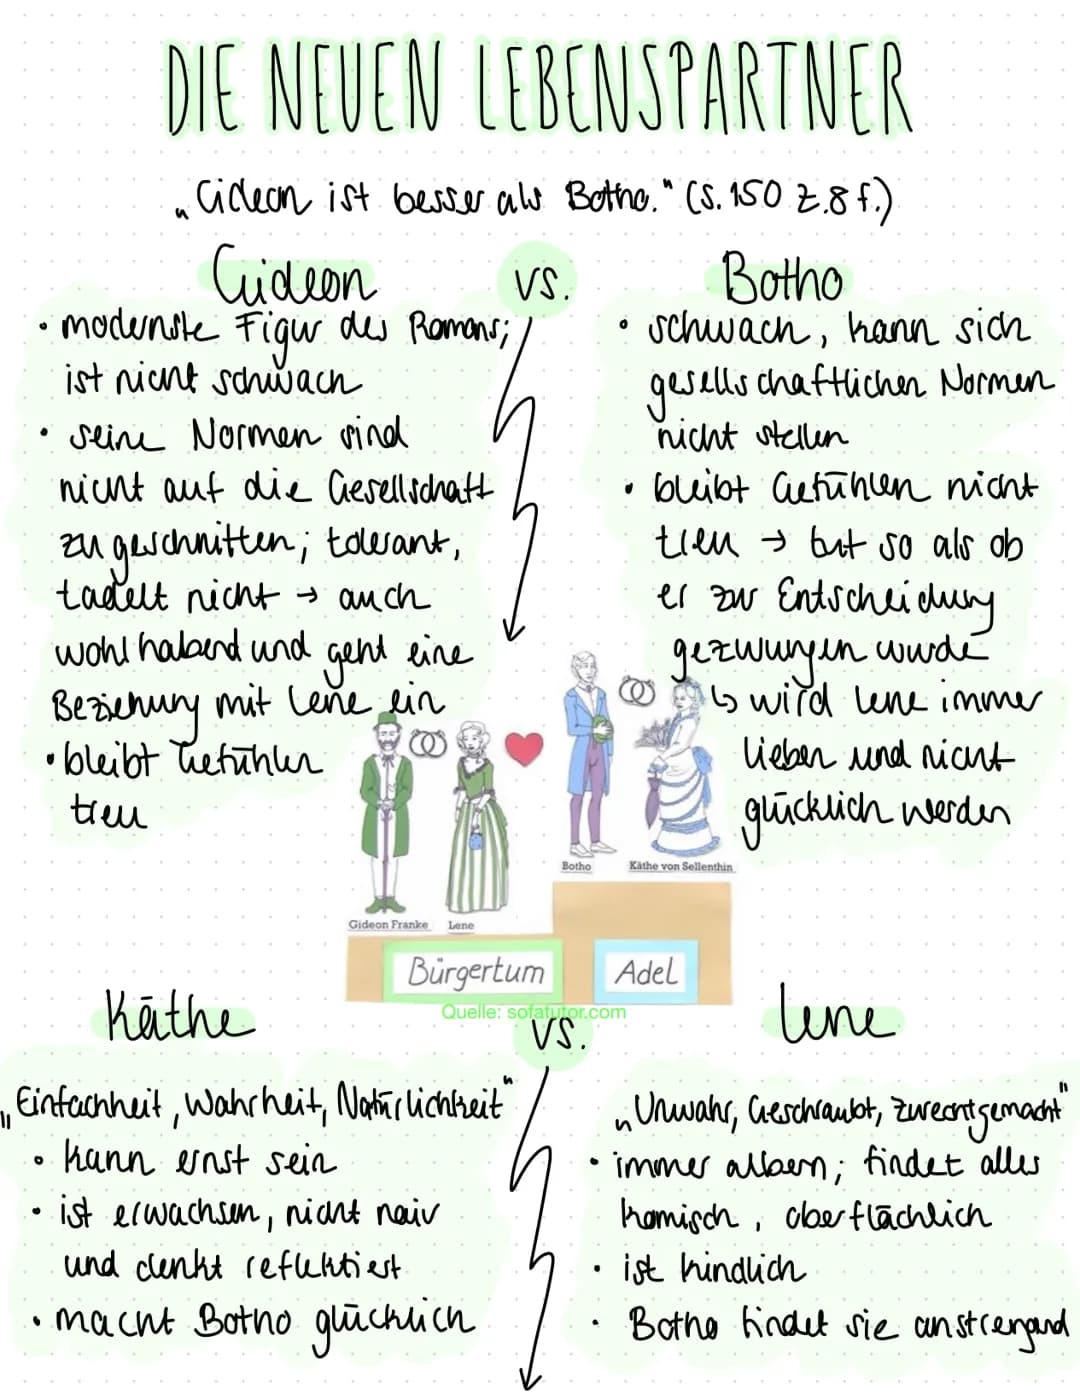 DIE NEUEN LEBENSPARTNER
„Gideon ist besser als Botho." (S. 150 Z.8 f.)
Gideon
vs.
Botho
• modernste Figur des Romans;
ist nicht schwach
• seine Normen sind
nicht auf die Gesellschaft
zugeschnitten; tolerant,
tadelt nicht → auch
wohlhabend und geht eine
Beziehung mit Lene ein
• bleibt Gefühlen
treu
• schwach, kann sich
gesellschaftlichen Normen
nicht stellen
• bleibt Gefühlen nicht
treu → tut so als ob
er zur Entscheidung
gezwungen wurde
↳ wird Lene immer
lieben und nicht
glücklich werden
Botho
Käthe von Sellenthin
Gideon Franke
Lene
Bürgertum
Adel
Quelle: sofatutor.com
Käthe
vs.
Lene
„Einfachheit, Wahrheit, Natürlichkeit"
• kann ernst sein
• ist erwachsen, nicht naiv
und denkt reflektiert
• macht Botho glücklich
„Unwahr, Geschraubt, zurechtgemacht"
• immer albern; findet alles
komisch, oberflächlich
• ist kindlich
• Botho findet sie anstrengend